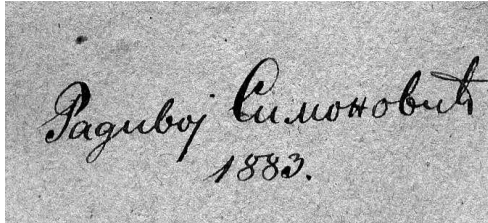 Радивој Симоновић
1883.